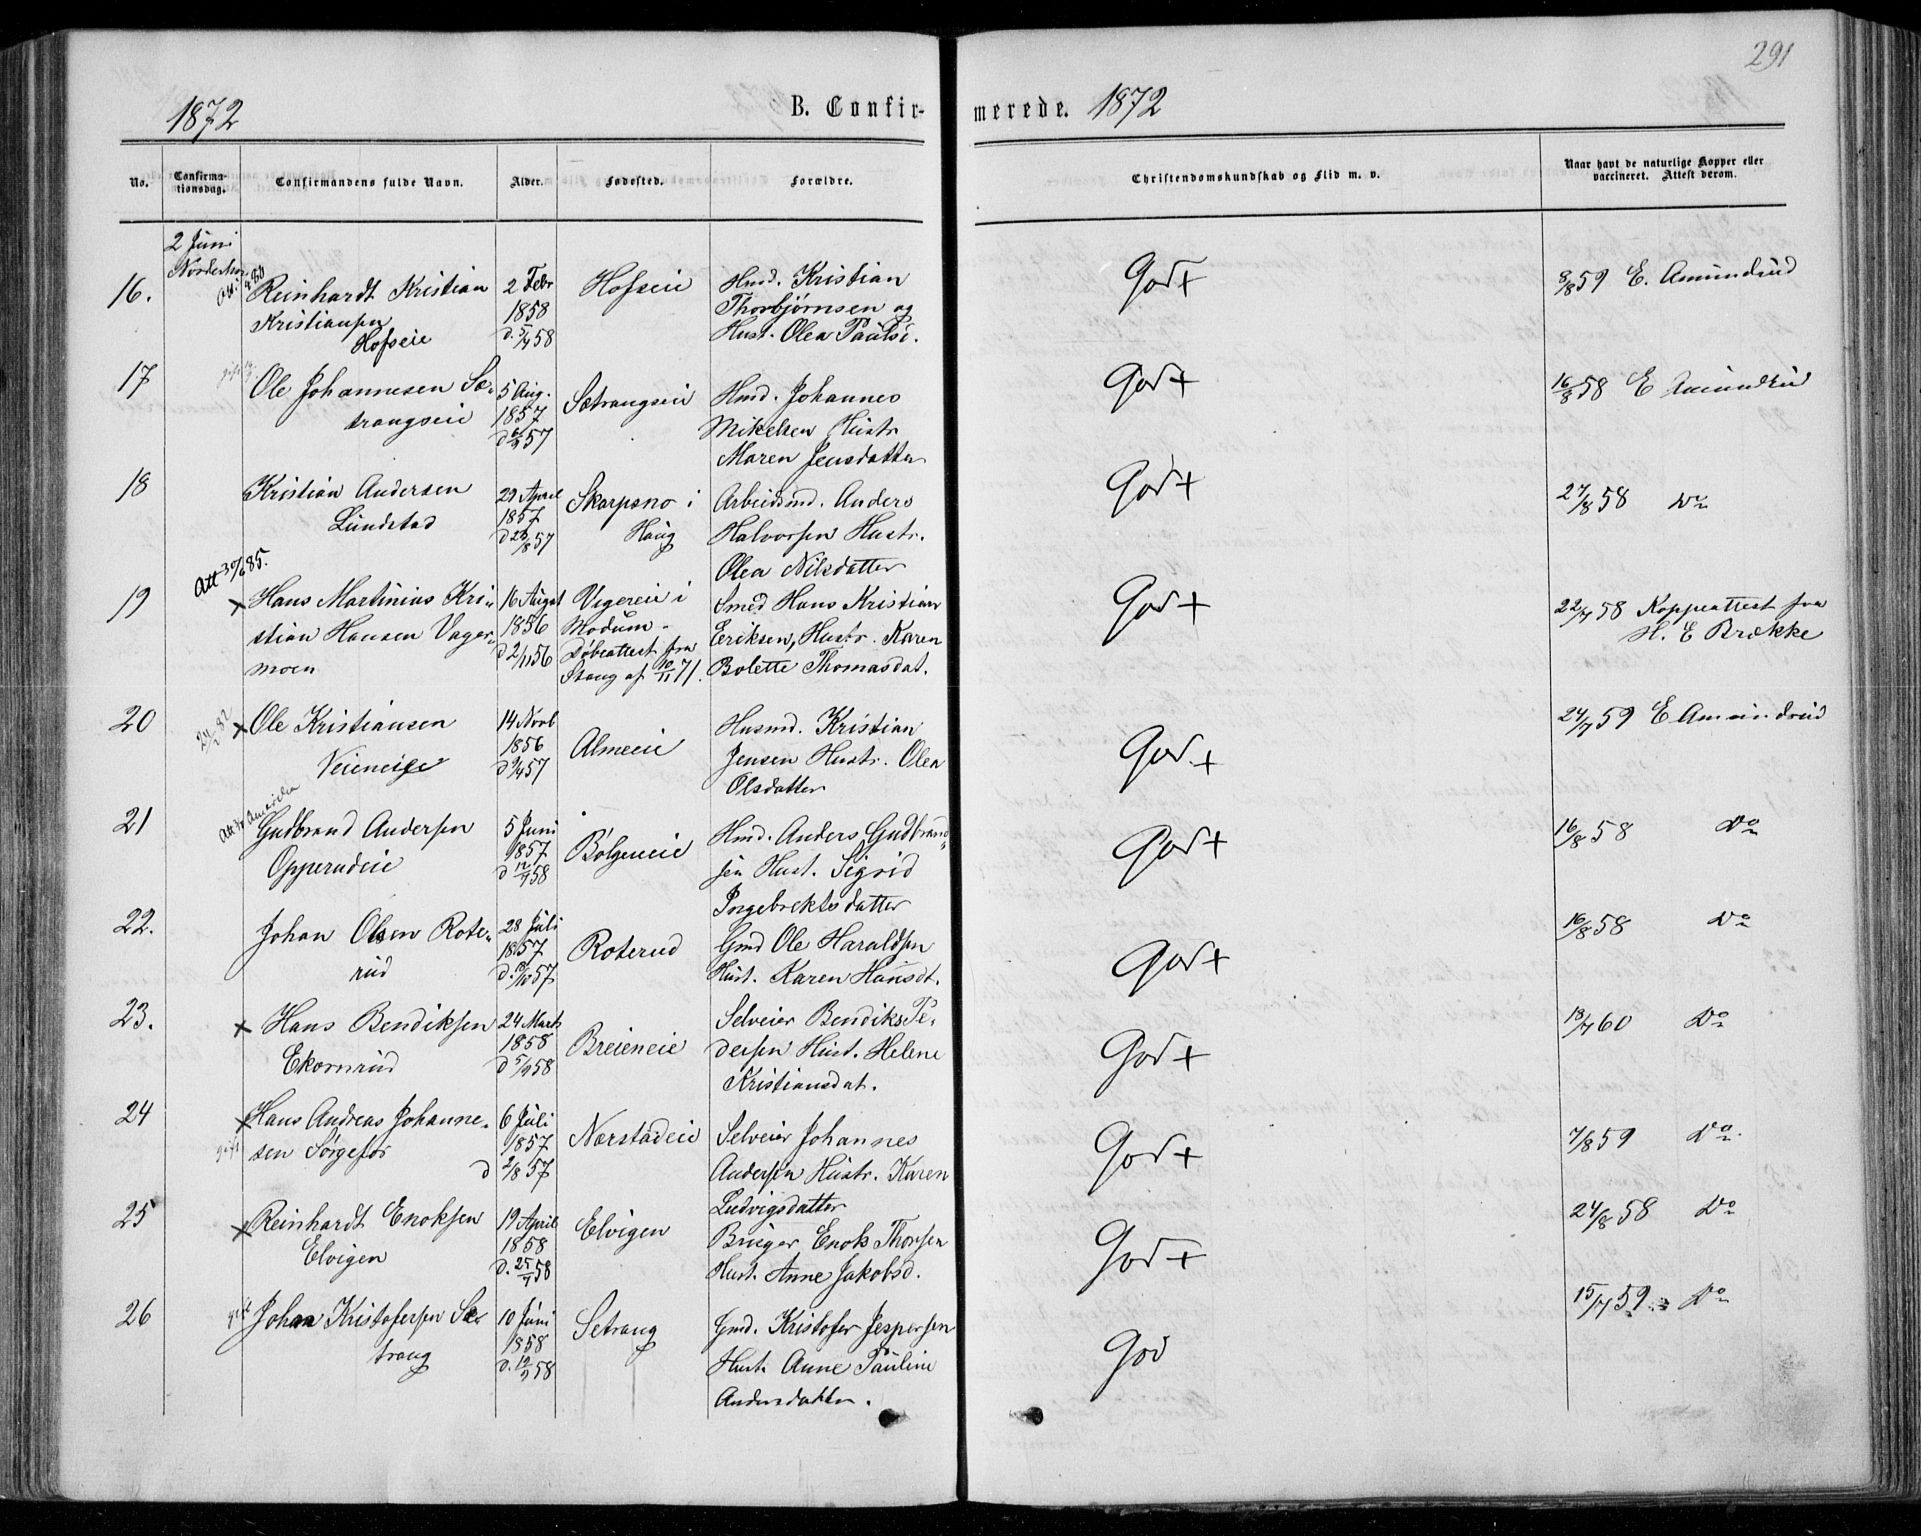 291
1872
B. Confir-
merede. 1872
No.
Confirma-
tionsdag.
Confirmandens fulde Navn.
Alder.
Fødested.
Forældre.
Christendomskundskab og Flid m. v.
Naar havt de naturlige Kopper eller
vaccineret. Attest derom.
2 Juni
Norderhov
16.
Reinhardt Kristian
Kristiansen
Hofseie
2 Febr
1858
d. 5/4 58
Hofseie
Hmd. Kristian
Thorbjørnsen og
Hust. Olea Paulsd.
God +
3/8 59 E. Amundrud
17
Ole Johannesen Sæ-
trangseie
5 Aug.
1857
d 6/9 57
Sætrangseie
Hmd. Johannes
Mikelsen Hustr
Maren Jensdatter
God +
16/8 58 E Amundrud
18
Kristian Andersen
Lundstad
29 April
1857
d 23/8 57
Skarpsno i
Haug
Arbeidsmd. Anders
Halvorsen Hustr.
Olea Nilsdatter
God +
27/8 58 Do
Att 30/6 85.
19
x Hans Martinius Kri-
stian Hansen Vager-
moen
16 August
1856
d 2/11 56
Vegereie i
Modum.
Døbeattest fra
Stang af 10/11 71.
Smed Hans Kristian
Eriksen, Hustr. Karen
Bolette Thomasdat.
God +
22/7 58 Koppeattest fra
H. E Brække
20
x Ole Kristiansen
Veieneie
14 Novb
1856
d 9/4 57
Almeeie
Husmd. Kristian
Jensen Hustr. Olea
Olsdatter
God +
24/7 59 E Amundrud
21
Att. til Amerika
Gudbrand Andersen
Opperudeie
5 Juni
1857
d 12/4 58
Bølgeneie
Hmd. Anders Gudbrand-
sen Hust. Sigrid
Ingebrektsdatter
God +
16/8 58 Do
22.
Johan Olsen Rote-
rud
28 Juli
1857
d. 18/10 57
Roterud
Gmd Ole Haraldsen
Hust. Karen Hansdt.
God +
16/8 58 Do
23.
x Hans Bendiksen
Ekornrud
24 Marts
1858
d 5/9 58
Breieneie
Selveier Bendiks Pe-
dersen Hust. Helene
Kristiansdat.
God +
18/7 60 Do
24
x Hans Andreas Johanne-
sen Sørgefos
gift
6 Juli
1857
d 2/8 57
Nærstadeie
Selveier Johannes
Andersen Hustr. Karen
Ludvigsdatter
God +
7/8 59 Do.
25
x Reinhardt Enoksen
Elvigen
19 April
1858
d. 25/4 58
Elvigen
Bruger Enok Thorsen
Hust. Anne Jakobsd.
God +
24/8 58 Do
26
gift
Johan Kristofersen Sæ-
trang
10 Juni
1858
d. 12/9 58
Setrang
Gmd. Kristofer Jespersen
Hust. Anne Pauline
Andersdatter.
God
15/7 59 Do